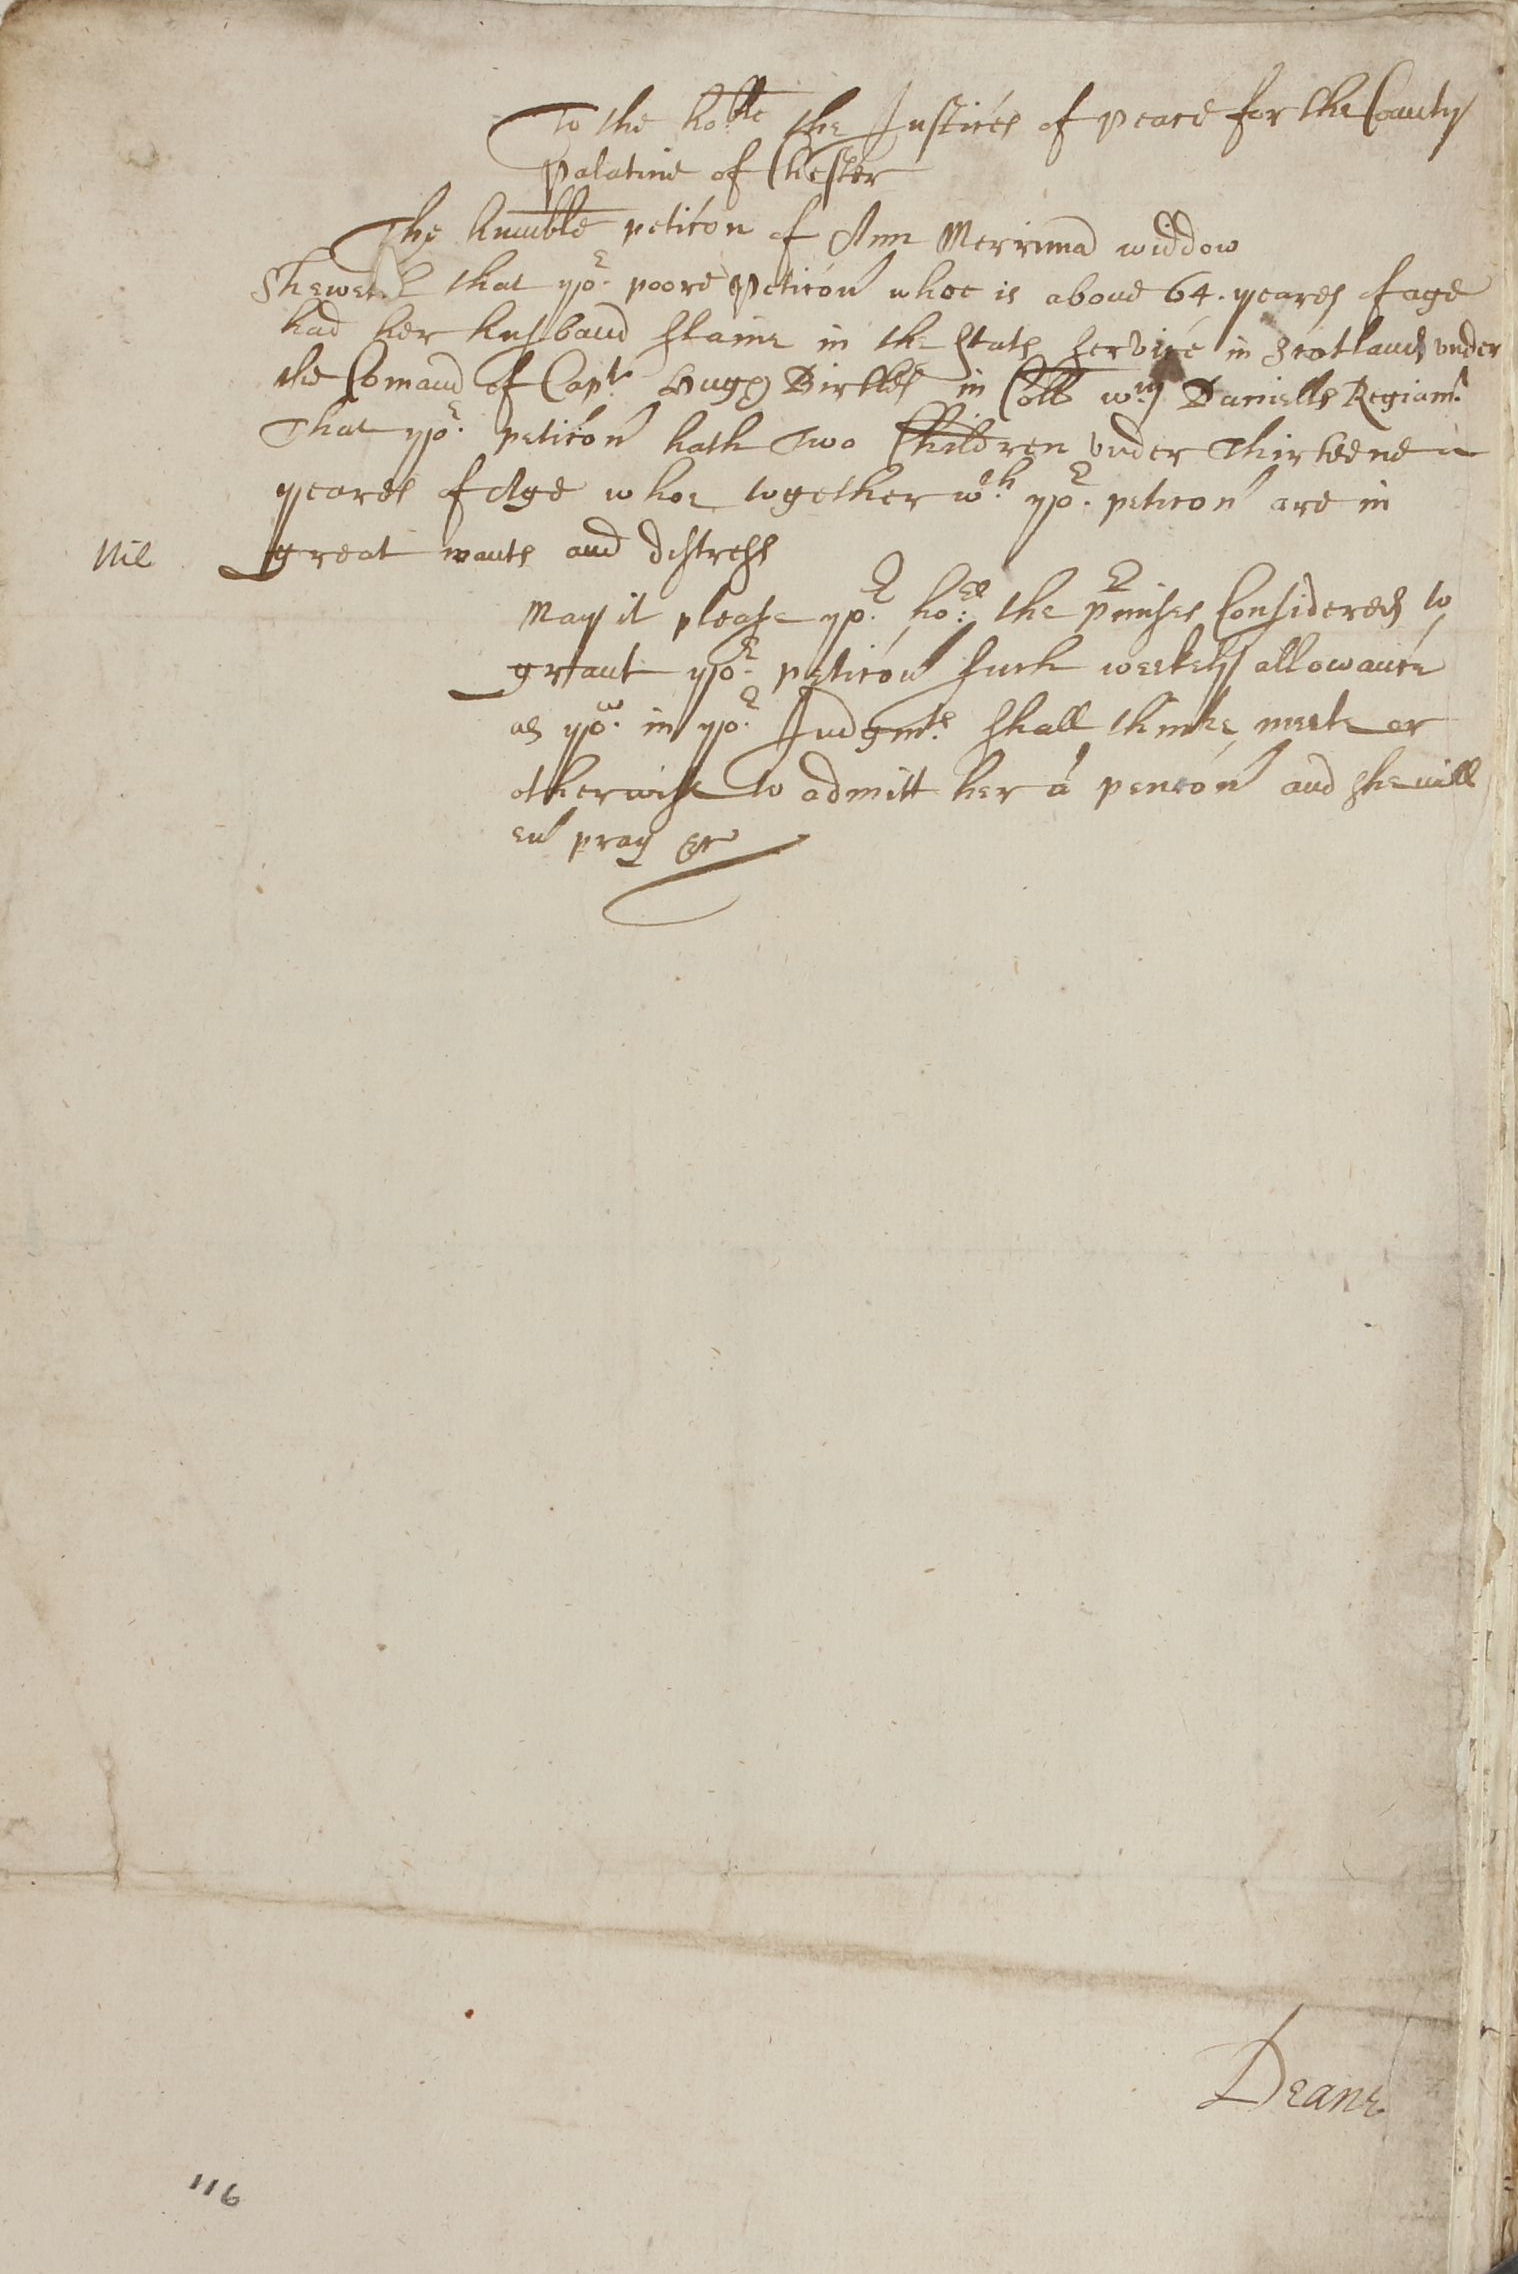 To the hoble the Justices of peace for the County
Palatine of Chester
The humble peticon of Ann Merriman widdow
Sheweth that yor poore Peticonr whoe is aboue 64. yeares of age
had her husband slaine in the States service in Scotland vnder
the Comand of Capt: Hugh Birtles in Coll Wm Daniells Regiamt
That yor peticonr hath Two Children vnder Thirteene
yeares of Age whoe together wth yor peticonr are in
Nil great wants and distresse
May it please yor hors: the prmises Considered to
graunt yor peticonr such weekely allowance
as you in yor Judgmts shall thinke meete or
otherwise to admitt her a penconr and she will
evr pray &c
Deane
116